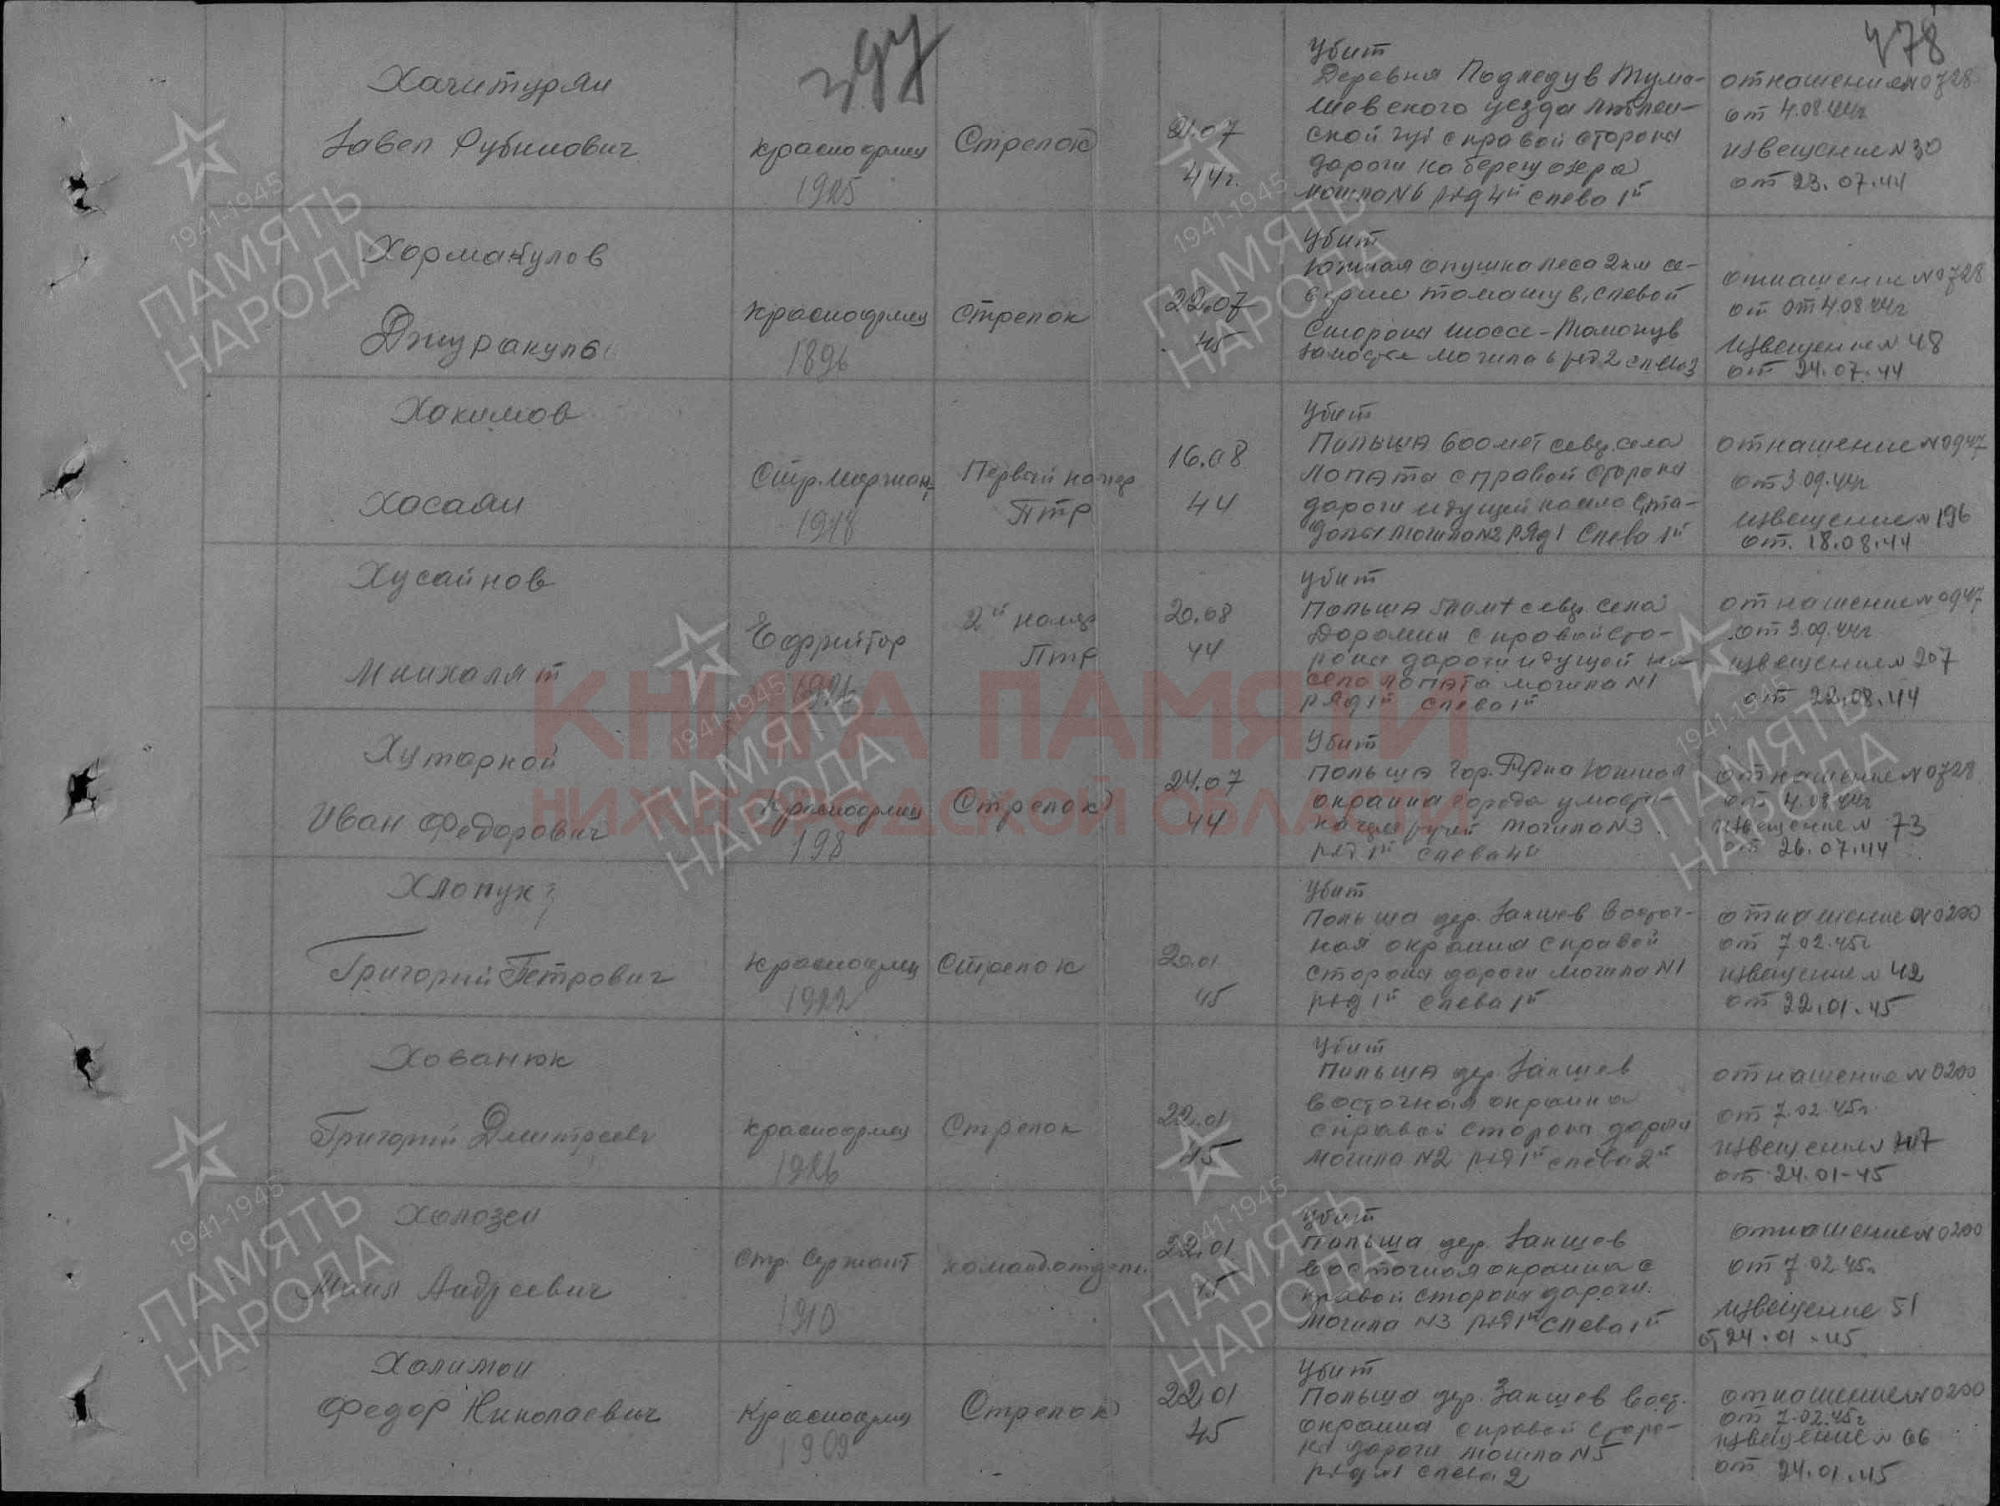 478
Хачитурян
Завел Рубинович
красноармеец
1925
Стрелок
21.07
44г.
Убит
Деревня Подледув Тума-
шевского уезда Люблин-
ской губ с правой стороны
дороги на берегу озера
могила N6 ряд 4й слева 1й
отношение N0728
от 4.08.44г
извещение N 30
от 23.07.44
Хормакулов
Джуракул
красноармеец
1896
Стрелок
22.07
45
Убит
Южная опушка леса 2км се-
вернее Томашув, с левой
Стороны шоссе-Томашув
Замостье могила 6 ряд 2 слева 3
отношение N0728
от от 4.08 44г
извещение N 48
от 24.07.44
Хакимов
Хасаян
Стр. Сержант
1918
Первый номер
Птр
16.08
44
Убит
Польша 600 мет севр. села
Лопата с правой стороны
дороги идущей на село
могила N2 ряд 1 Слева 1й
отношение N0947
от 3.09.44г
извещение N 196
от. 18.08.44
Хусаинов
Минхалят
Ефрейтор
1926
2й номер
Птр
20.08
44
Убит
Польша севр села
с правой сто-
роны дороги идущей на
село Лопата могила N1
ряд 1й слева 1й
отношение N0947
от 3.09.44г
извещение N 207
от 22.08.44
Хуторной
Иван Федорович
Красноармеец
198
Стрелок
24.07
44
Убит
Польша гор. Южная
окраина города у мости-
ка через ручей могила N3
ряд 1й слева 4й
отношение N0728
от 4.08 44г
извещение N 73
от 26.07.44
Хлопук
Григорий Петрович
красноармеец
1922
Стрелок
20.01
45
Убит
Польша дер. Закшев восточ-
ная окраина с правой
стороны дороги могила N1
ряд 1й слева 1й
отношение N0200
от 7.02.45г
извещение N 42
от 22.01.45
Хованюк
Григорий Дмитриевич
красноармеец
1926
Стрелок
22.01
45
Убит
Польша дер. Закшев
восточная окраина
с правой стороны дороги
могила N2 ряд 1й слева 2й
отношение N0200
от 7.02.45г.
извещение N 47
от 24.01-45
Холозен
Андреевич
стр. Сержант
1910
команд. отделен.
22.01
45
Убит
Польша дер. Закшев
восточная окраина с
правой стороны дороги.
могила N3 ряд 1й слева 1й
отношение N0200
от 7.02 45г.
извещение 51
от 24.01.45
Халимон
Федор Николаевич
Красноармеец
1909
Стрелок
22.01
45
Убит
Польша дер. Закшев вост.
окраина с правой сторо-
ны дороги могила N5
ряд N1 слева 2
отношение N0200
от 7.02.45г
извещение N 66
от 24.01.45
КНИГА ПАМЯТИ
НИЖЕГОРОДСКОЙ ОБЛАСТИ
1941-1945
ПАМЯТЬ
НАРОДА
1941-1945
ПАМЯТЬ
НАРОДА
1941-1945
ПАМЯТЬ
НАРОДА
1941-1945
ПАМЯТЬ
НАРОДА
1941-1945
ПАМЯТЬ
НАРОДА
1941-1945
ПАМЯТЬ
НАРОДА